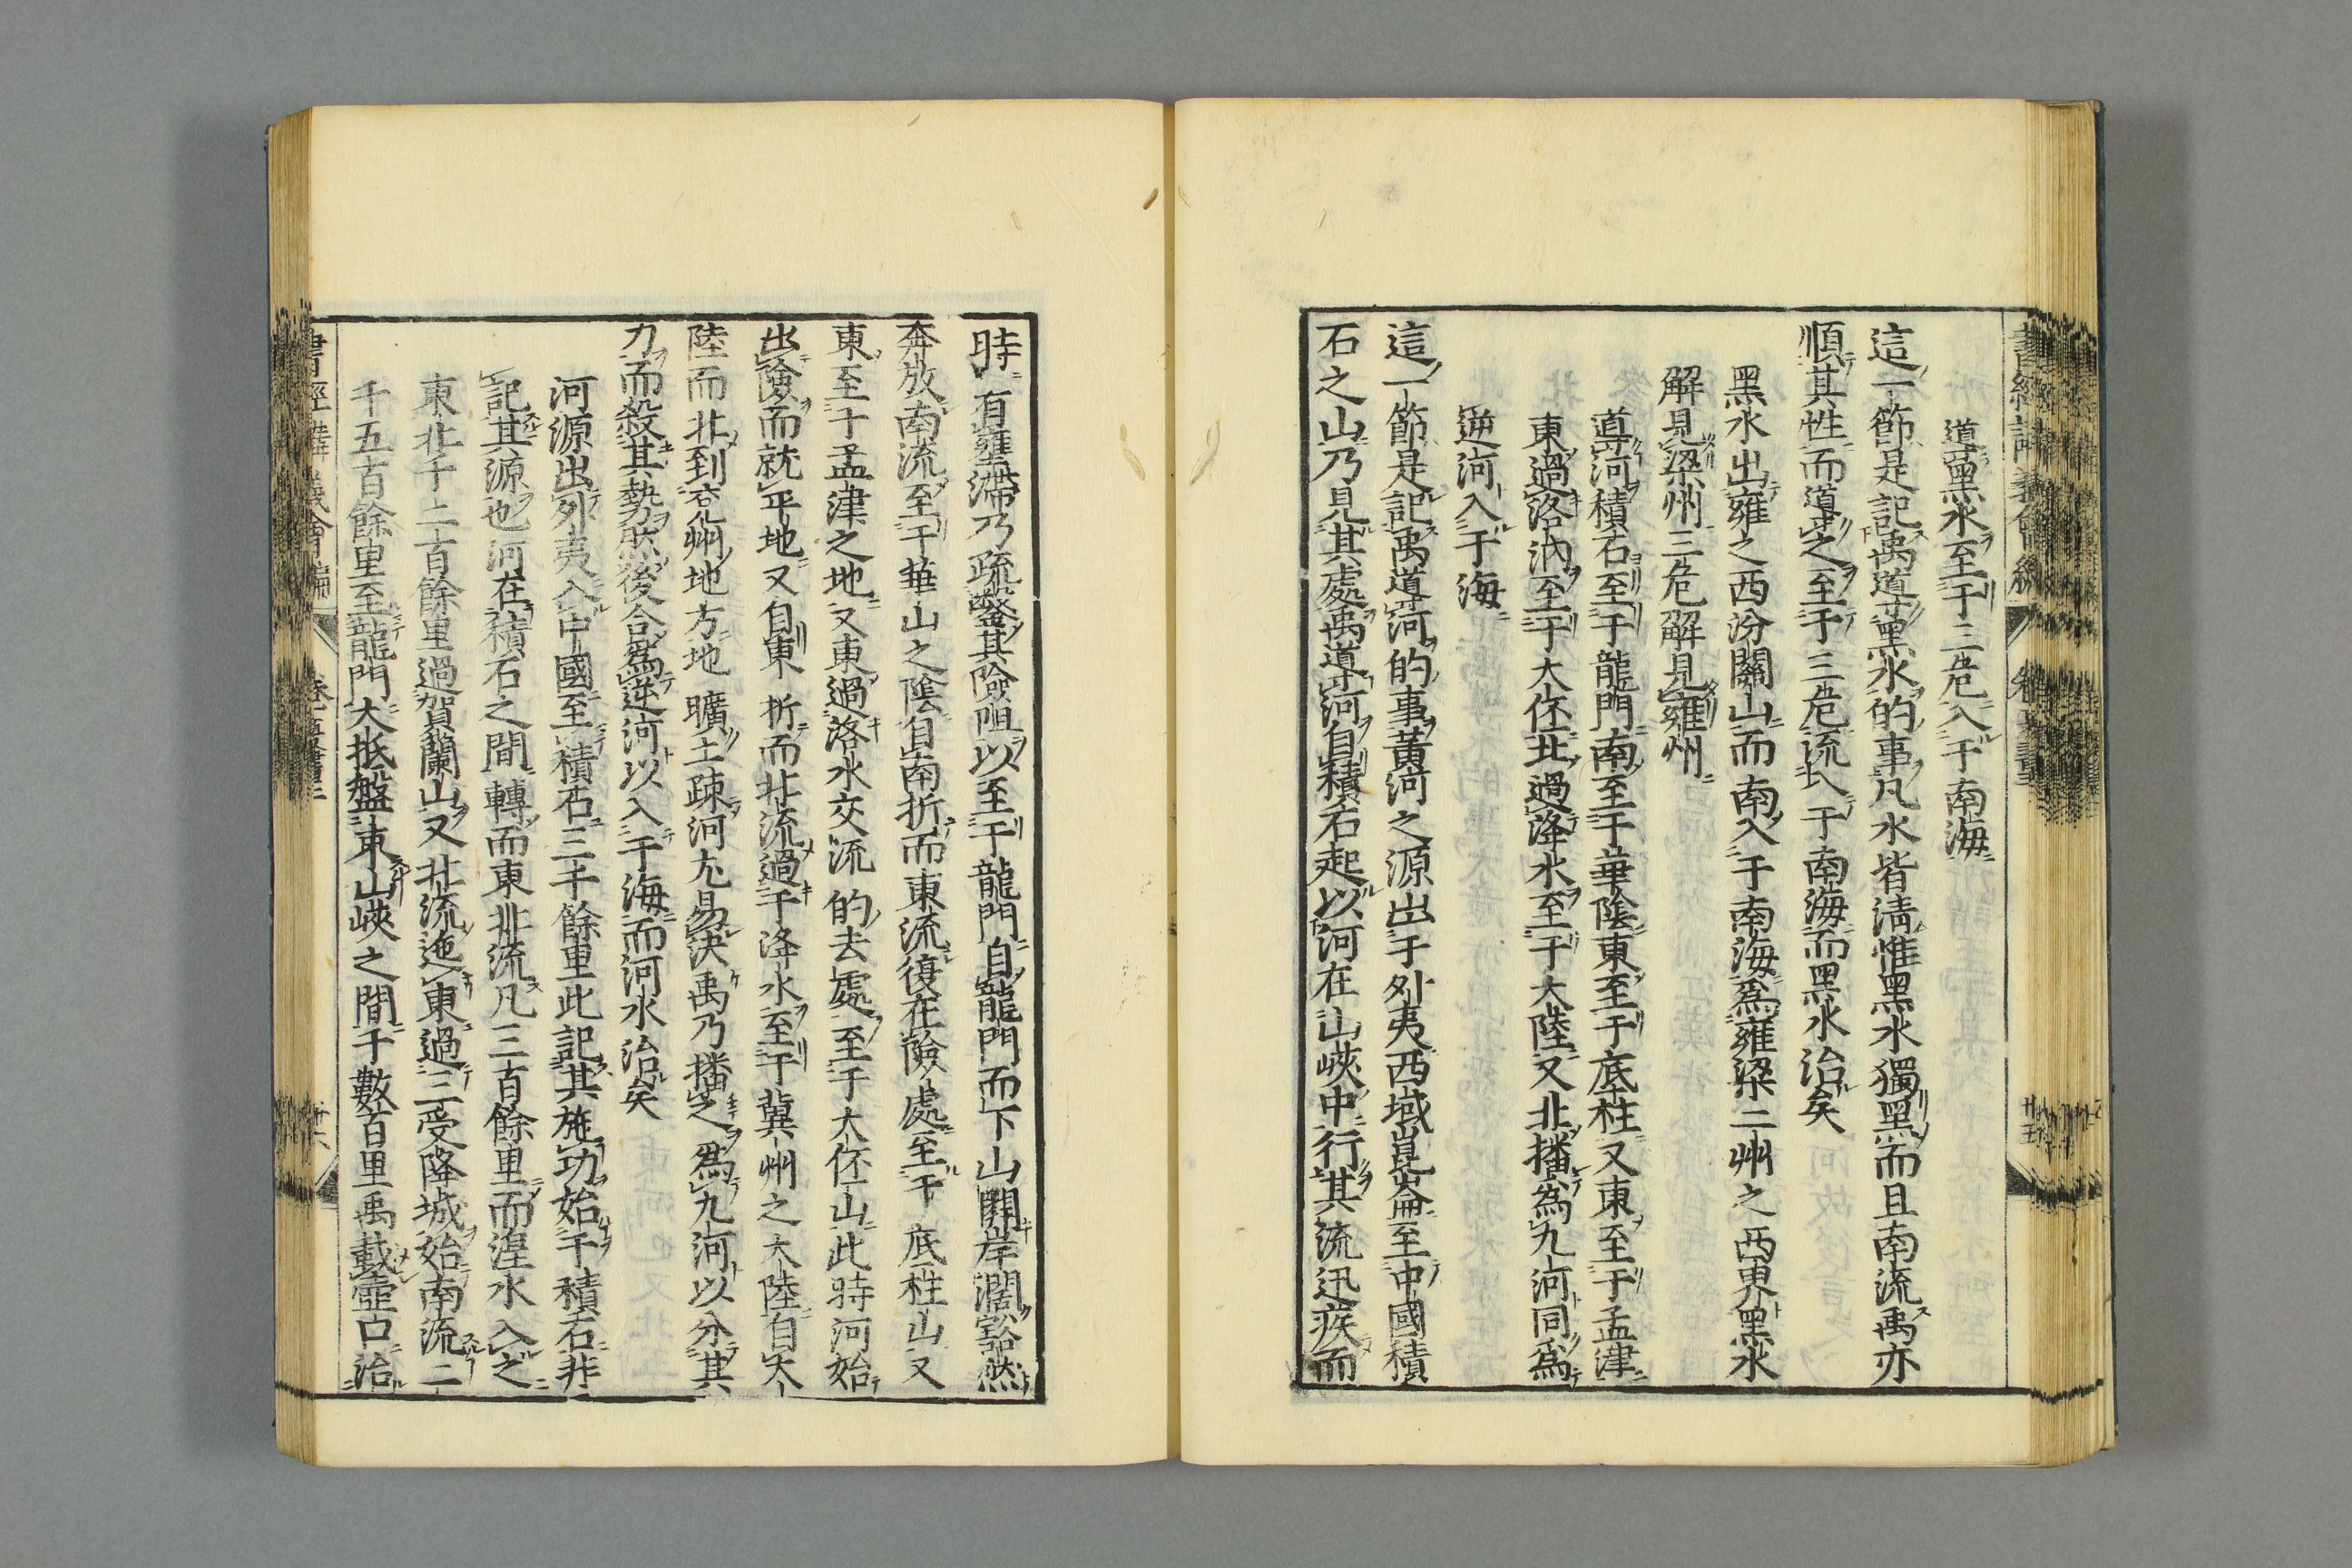 導黑水至于三危入于南海
這一節是記禹導黑水的事凡水皆淸惟黑水獨黑而且南流禹亦
順其性而導之至于三危流於于南海而黑水治矣
黑水出雍之西汾關山而南入于南海爲雍梁二州之西界黑水
解見梁州三危解見雍州
導河積石至于龍門南至于華陰東至于底柱又東至于孟津
東過洛汭至于大伾北過洚水至于大陸又北播爲九河同爲
逆河入于海
這一節是記禹導河的事黃河之源出于外夷西域崑崙至中國積
石之山乃見其處禹導河自積石起以河在山峽中行其流迅疾而
時有壅滯乃疏鑿其險阻以至于龍門自龍門而下山開岸濶豁然
奔放南流至于華山之陰自南折而東流復在險處至于底柱山又
東至于孟津之地又東過洛水交流的去處至于大伾山此時河始
出險而就平地又自東折而北流過于洚水至于冀州之大陸自大
陸而北到兗州地方地曠土疎河尤易決禹乃播之爲九河以分其
力而殺其勢然後合爲逆河以入于海而河水治矣
河源出外夷入中國至積石三千餘里此記其施功始于積石非
記其源也河在積石之間轉而東北流凡三百餘里而湟水入之
東北千二百餘里過賀蘭山又北流迤東過三受降城始南流二
千五百餘里至龍門大抵盤束山峽之間千數百里禹載壺口治